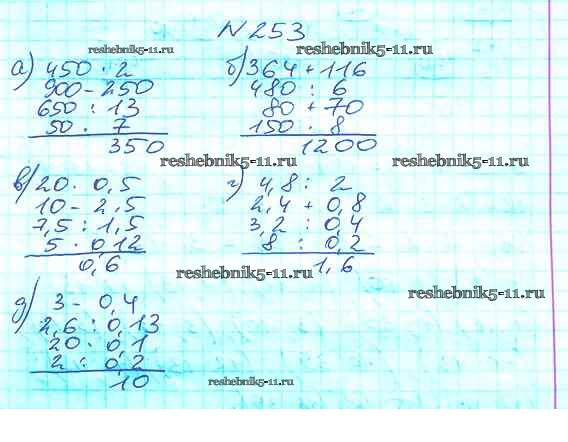 N 253
reshebnik5-11.ru
reshebnik5-11.ru
а) 450 · 2
900 - 250
650 : 13
50 · 7
350
б) 364 + 116
480 : 6
80 + 70
150 · 8
1200
reshebnik5-11.ru
reshebnik5-11.ru
в) 20 · 0,5
10 - 2,5
7,5 : 1,5
5 · 0,12
0,6
г) 4,8 : 2
2,4 + 0,8
3,2 : 0,4
8 : 0,2
1,6
reshebnik5-11.ru
reshebnik5-11.ru
д) 3 - 0,4
2,6 : 0,13
20 · 0,1
2 : 0,2
10
reshebnik5-11.ru